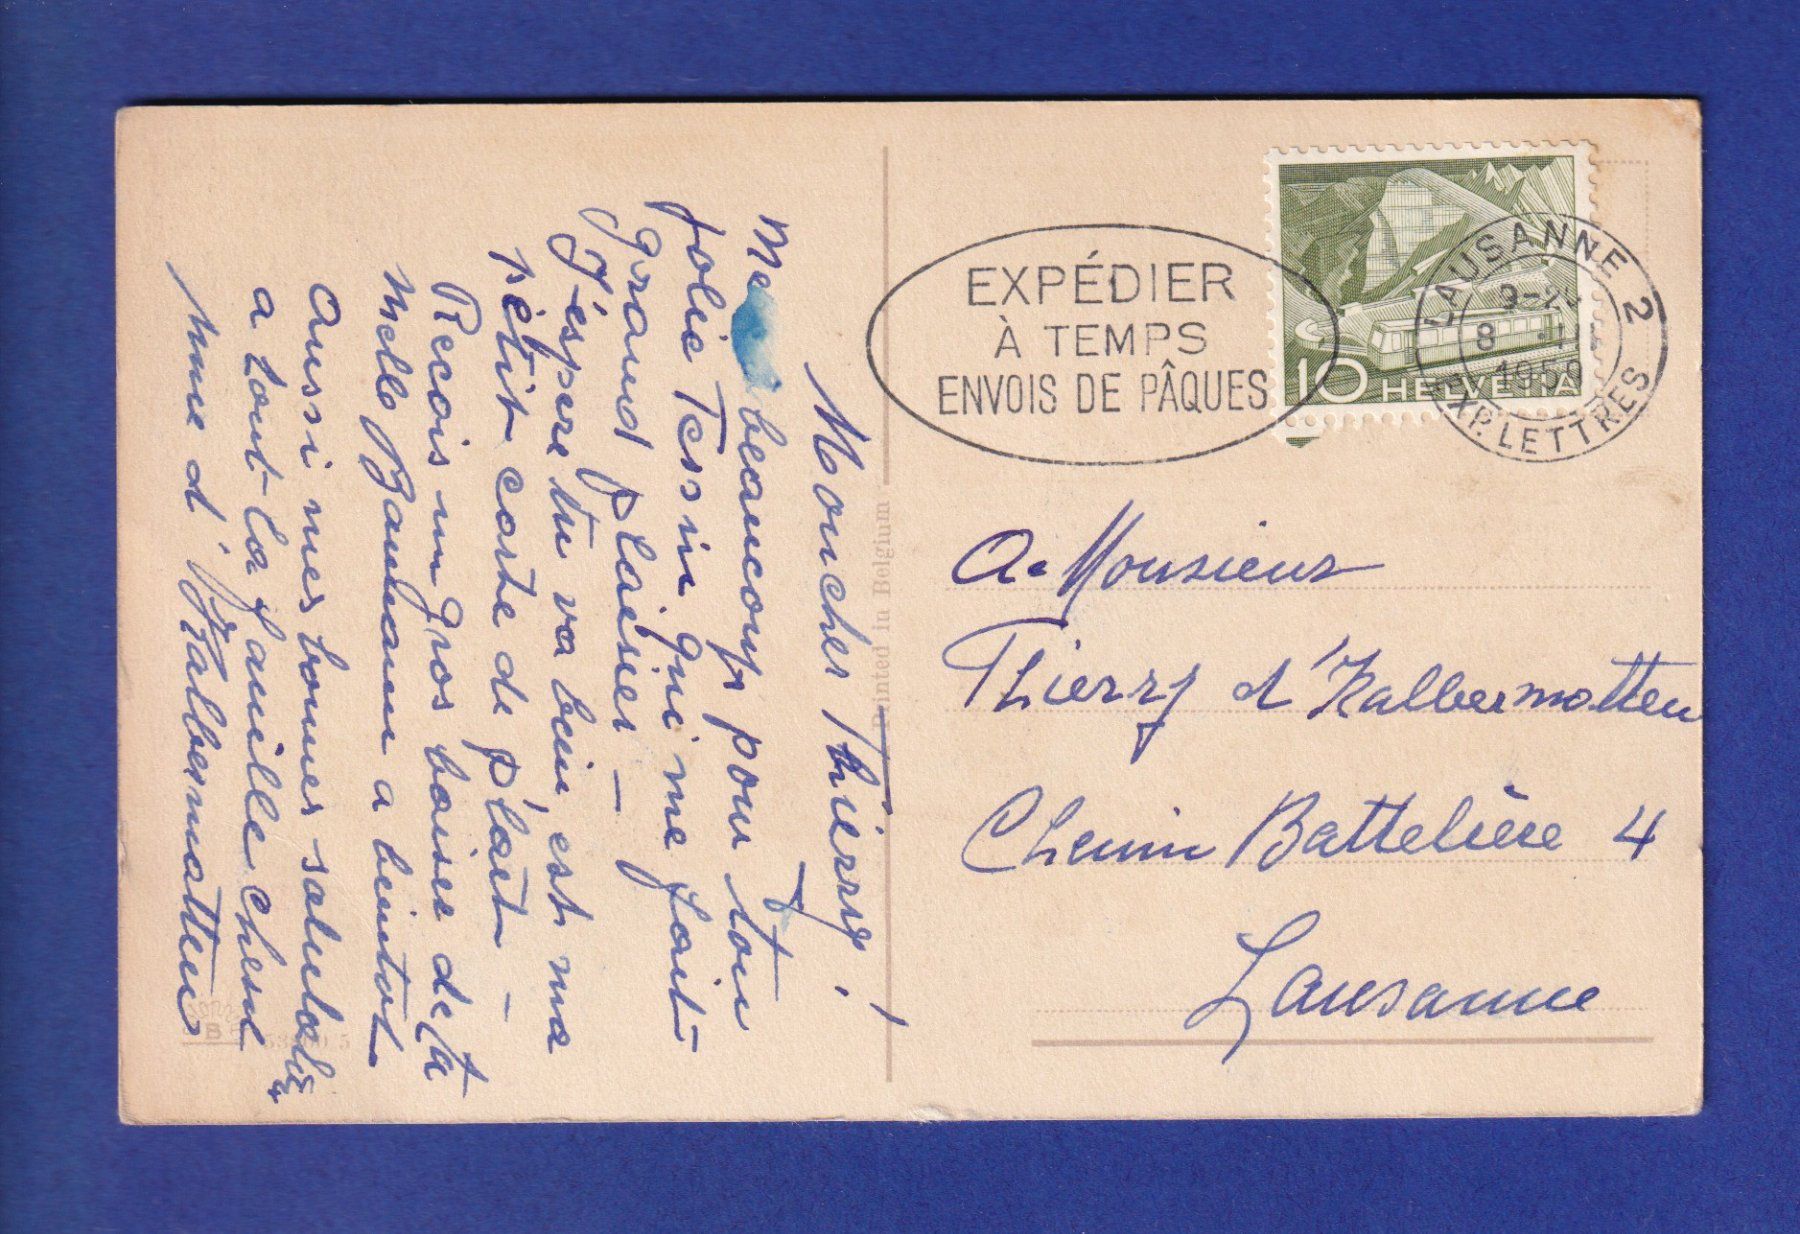 Moncher Thierry!
beaucoup pour ton
jolie Tessin qui me fait
grand plaisier —
J'éspere tu va bein, est ma
petit carte de plait —
Recois un gros baiser de ta
Melle Bauleaun a beintot
aussi mes bonnes salutation
a tout la famille chere
Mme d'Kalbermatten
Printed in Belgium
EXPÉDIER
À TEMPS
ENVOIS DE PÂQUES
10 HELVETIA
LAUSANNE 2
8
1959
EXP. LETTRES
A. Monsieur
Thierry d'Kalbermatten
Chemin Battelière 4
Lausanne
B